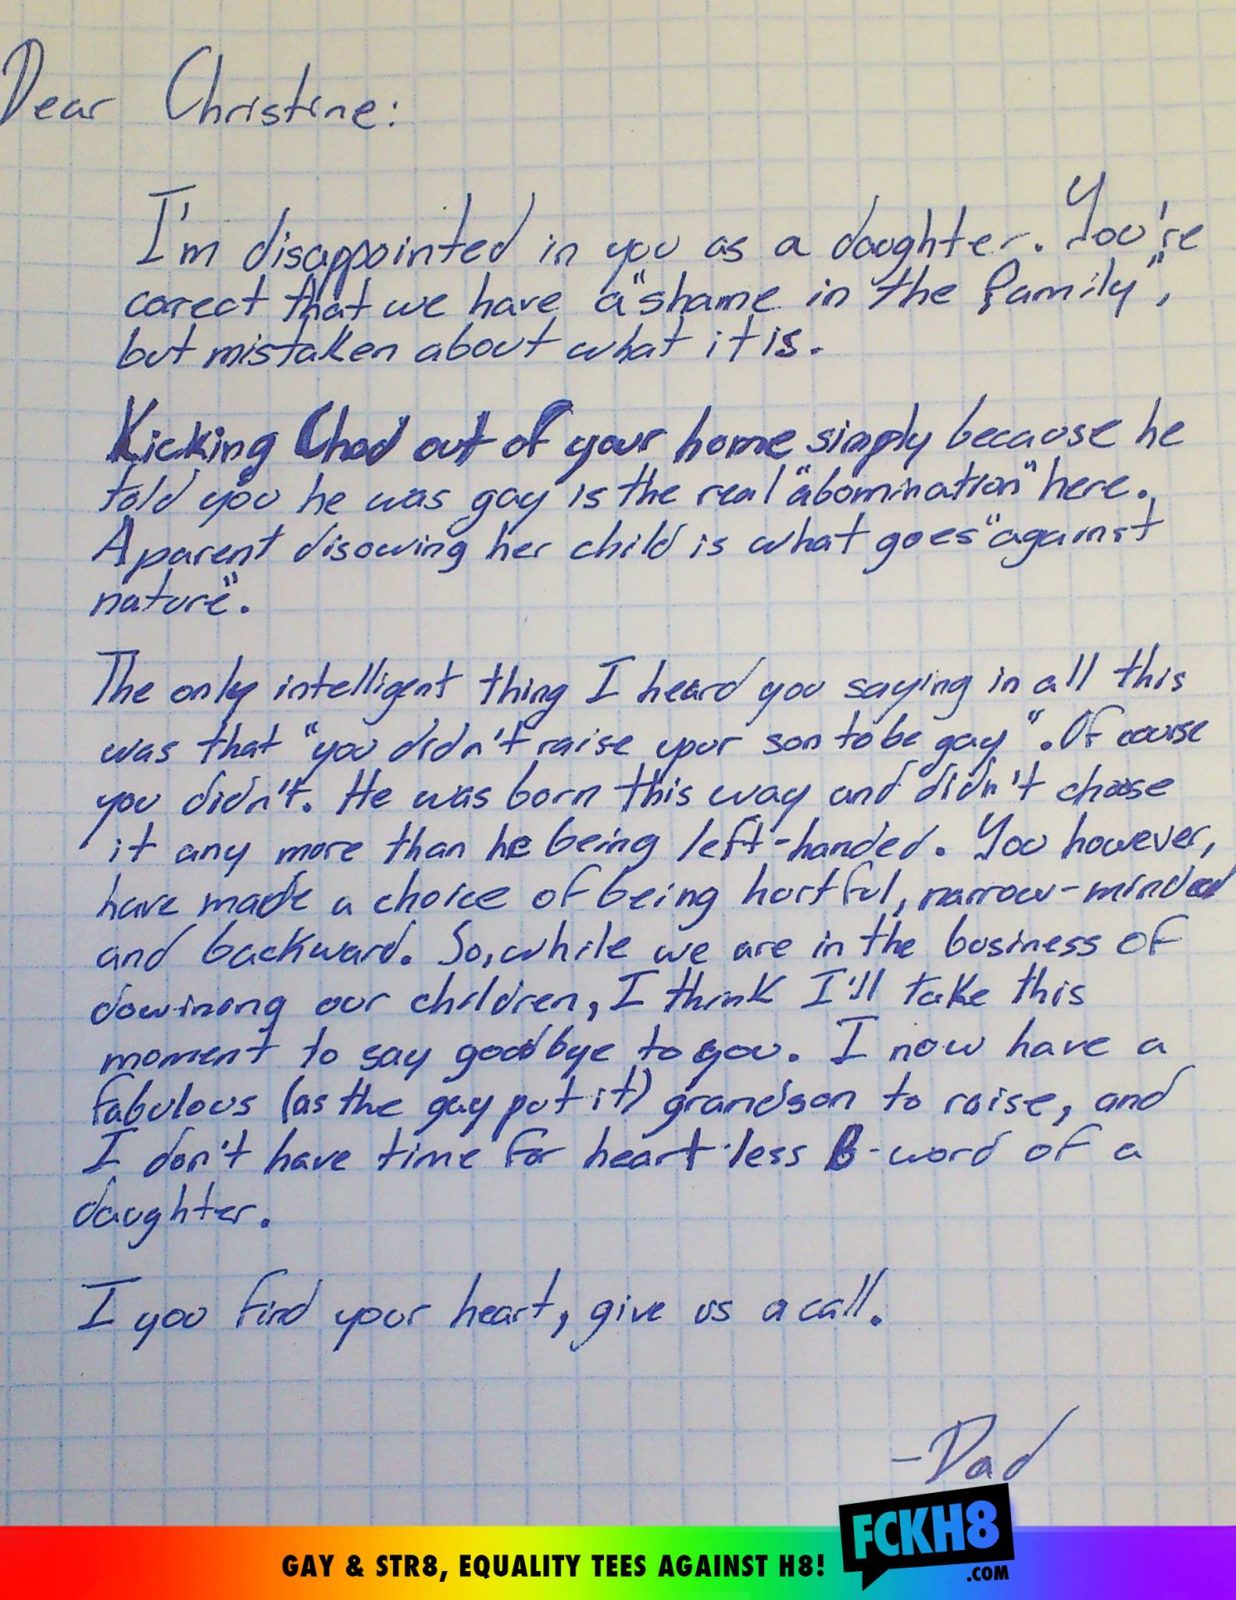 Dear Christine:
I'm disappointed in you as a daughter. You're
corect that we have a "shame in the family",
but mistaken about what it is.
Kicking Chad out of your home simply because he
told you he was gay is the real "abomination" here.
A parent disowing her child is what goes "against
nature".
The only intelligent thing I heard you saying in all this
was that "you didn't raise your son to be gay". Of course
you didn't. He was born this way and didn't choose
it any more than he being left-handed. You however,
have made a choice of being hortful, narrow-minded
and backward. So, while we are in the business of
dowinong our children, I think I'll take this
moment to say goodbye to you. I now have a
fabulous (as the gay put it) grandson to raise, and
I don't have time for heart-less B-word of a
daughter.
I you find your heart, give us a call.
-Dad
FCKH8
.COM
GAY & STR8, EQUALITY TEES AGAINST H8!